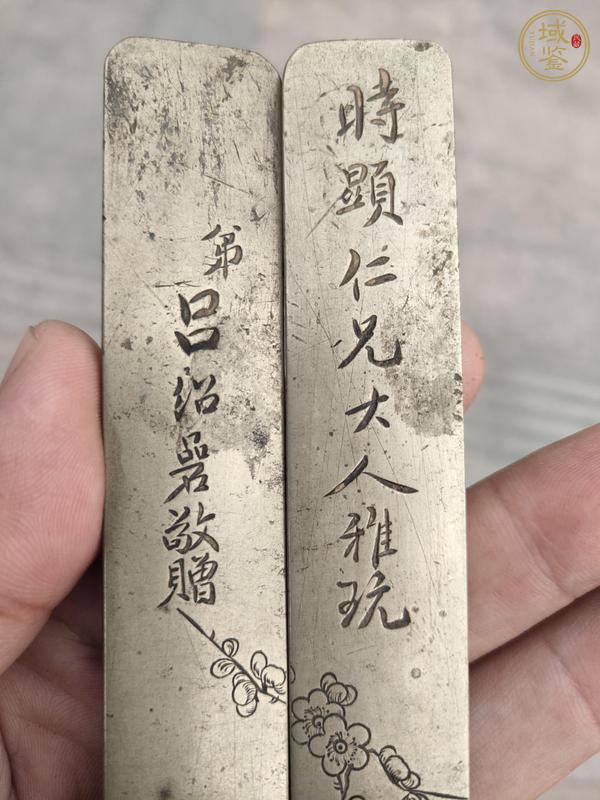 時顯仁兄大人雅玩
弟
呂紹磐敬贈
域鑒
YUJIAN